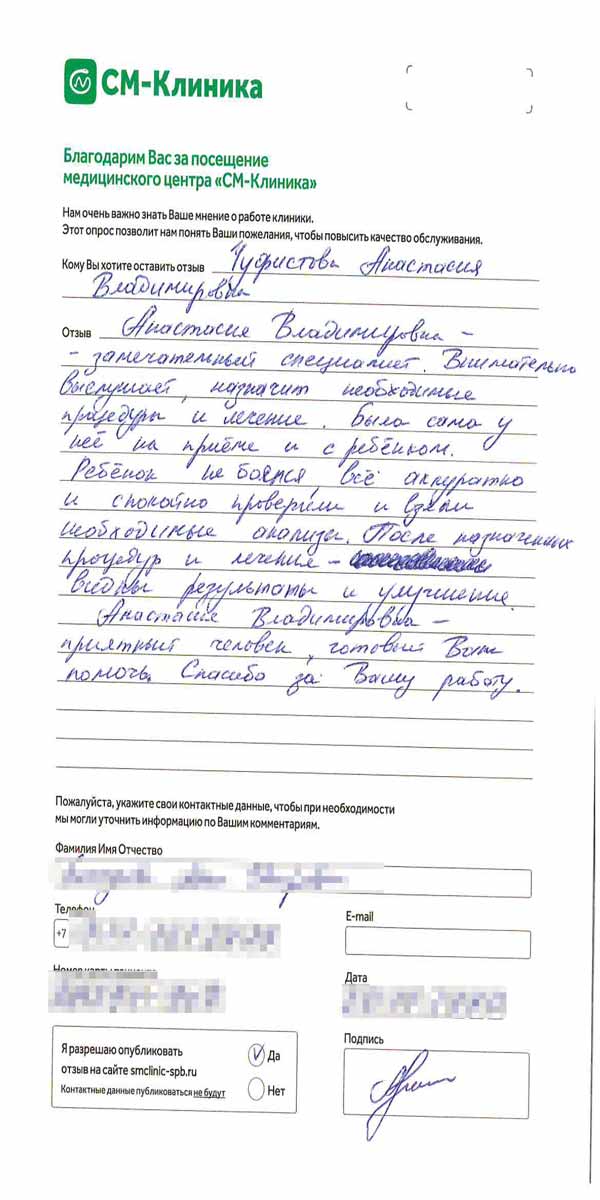 СМ-Клиника
Благодарим Вас за посещение
медицинского центра «СМ-Клиника»
Нам очень важно знать Ваше мнение о работе клиники.
Этот опрос позволит нам понять Ваши пожелания, чтобы повысить качество обслуживания.
Кому Вы хотите оставить отзыв Чуфистова Анастасия
Владимировна
Отзыв Анастасия Владимировна -
- замечательный специалист. Внимательно
выслушает, назначит необходимые
процедуры и лечение. Была сама у
неё на приёме и с ребёнком.
Ребёнок не боялся, всё аккуратно
и спокойно проверили и взяли
необходимые анализы. После назначенных
процедур и лечение -
видны результаты и улучшение.
Анастасия Владимировна -
приятный человек, готовый Вам
помочь. Спасибо за Вашу работу.
Пожалуйста, укажите свои контактные данные, чтобы при необходимости
мы могли уточнить информацию по Вашим комментариям.
Фамилия Имя Отчество
Телефон
E-mail
+7
Номер карты пациента
Дата
Я разрешаю опубликовать
отзыв на сайте smclinic-spb.ru
Контактные данные публиковаться не будут
Да
Нет
Подпись